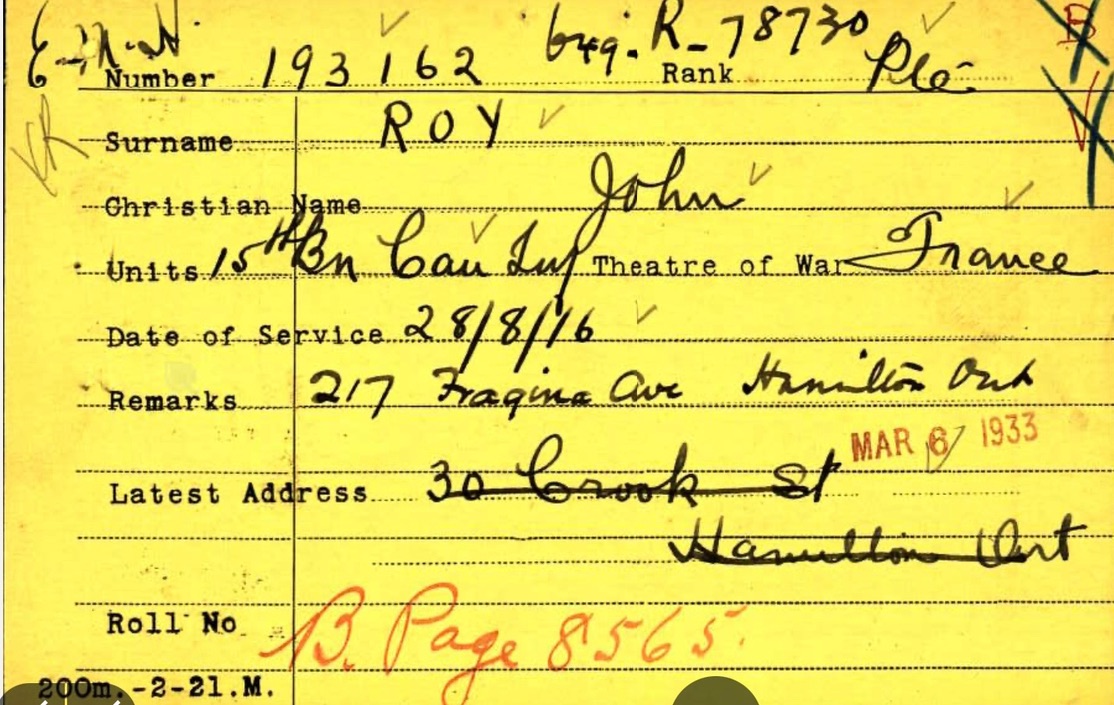 Number 193162 R-78730 Rank Pte
Surname ROY
Christian Name John
Units 15th Bn Can Inf Theatre of War France
Date of Service 28/8/16
Remarks 217 Ave Hamilton Ont
MAR 6 1933
Latest Address 30 Crook St
Hamilton Ont
Roll No B. Page 8565.
200m.-2-21.M.